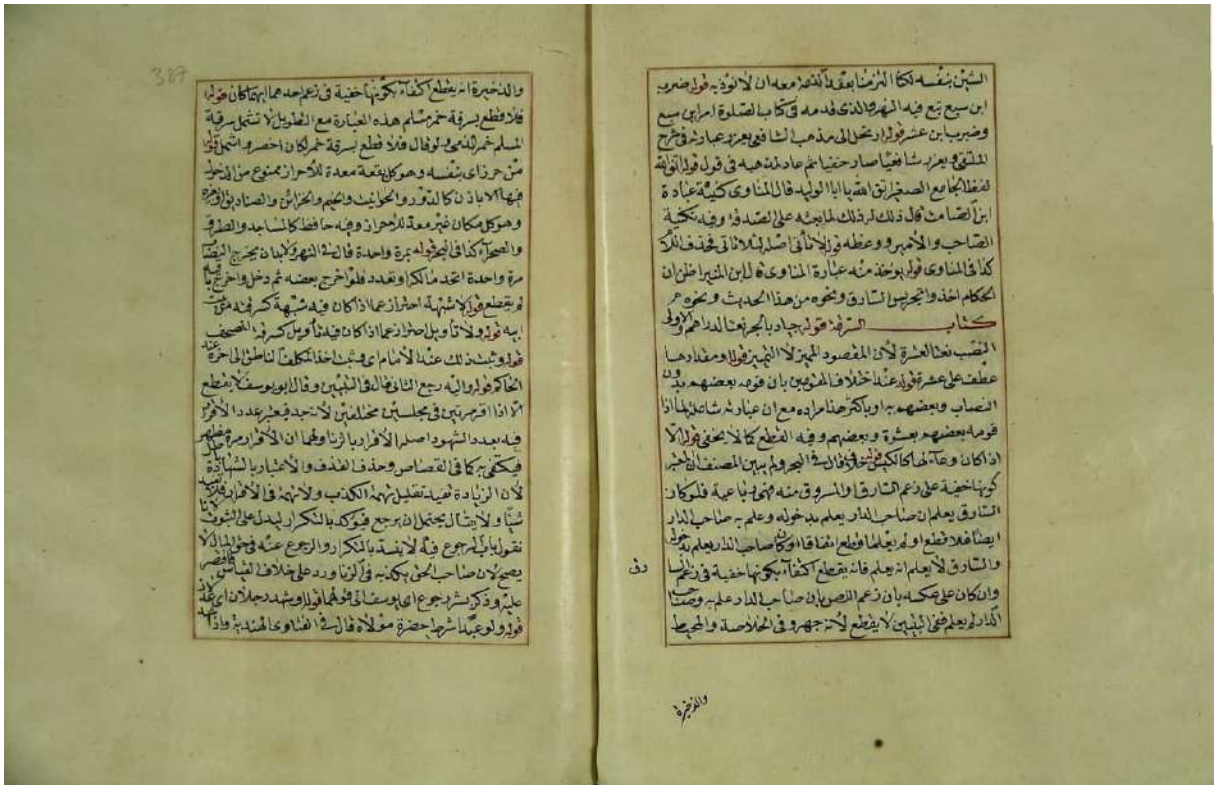 ابن سبع تبع فيه النهر والذى قدمه فى كتاب الصلوة امر ابن سبع
وضرب ابن عشر قوله ارتحل الى مذهب الشافعى يعزر عبارته فى شرح
الملتقى ويعزر شافعيا صار حنفيا ثم عاد لمذهبه فى قول قوله اتق الله
لفظ الجامع الصغير اتق الله يا ابا الوليد قال المناوى كنية عبادة
ابن الصامت قال ذلك له لما بعثه على الصدقة وفيه تكنية
الصاحب والامير ووعظه قوله لا تأتى اصله لئلا تأتى فحذف اللام
كذا فى المناوى قوله يؤخذ منه عبارة المناوى قال ابن المنير اظن ان
الحكام اخذوا تجريس السارق ونحوه من هذا الحديث ونحوه
كتاب السرقة قوله جياد بالجر نعتا لدراهم والاولى
النصب نعتا لعشرة لان المقصود المميز لا التمييز قوله ومقدارها
عطف على عشرة قوله عند اختلاف المقومين بان قومه بعضهم بدون
النصاب وبعضهم به او باكثر هذا مراده مع ان عبارته شاملة لما اذا
قومه بعضهم بعشرة وبعضهم وفيه القطع كما لا يخفى قوله الا
اذا كان وعاء لها كالكيس قوله خفية قال فى البحر ولم يبين المصنف ان المعتبر
كونها خفية على زعم السارق او المسروق منه فهى رباعية فلو كان
السارق يعلم ان صاحب الدار يعلم بدخوله وعلم به صاحب الدار
ايضا فلا قطع او لم يعلما قطع اتفاقا او كان صاحب الدار يعلم بدخوله
والسارق لا يعلم انه يعلم فانه يقطع اكتفاء بكونها خفية فى زعم السارق
وان كان على عكسه بان زعم اللص بان صاحب الدار علم به وصاحب
الدار لم يعلم ففى التبيين لا يقطع لانه جهر وفى الخلاصة والمحيط
والذخيرة
387
والذخيرة انه يقطع اكتفاء بكونها خفية فى زعم احدهما ايهما كان قوله
فلا قطع بسرقة خمر مسلم هذه العبارة مع التطويل لا تشمل سرقة
المسلم خمر الذمى ولو قال فلا قطع بسرقة خمر لكان اخصر واشمل قوله
من حرز اى بنفسه وهو كل بقعة معدة للاحراز ممنوع من الدخول
فيها الا باذن كالدور والحوانيت والخيم والخزائن والصناديق او بغيره
وهو كل مكان غير معد للاحراز وفيه حافظ كالمساجد والطرق
والصحراء كذا فى البحر قوله بمرة واحدة قال فى النهر ولا بد ان يخرج النصاب
مرة واحدة اتحد مالكه او تعدد فلو اخرج بعضه ثم دخل واخرج باقيه
لم يقطع قوله لا شبهة احتراز عما اذا كان فيه شبهة كسرقته من بيت
ابيه قوله ولا تأويل احتراز عما اذا كان فيه تأويل كسرقة المصحف
قوله وثبت ذلك عند الامام
الحاكم قوله واليه رجع الثانى قال فى التبيين وقال ابو يوسف لا يقطع
الا اذا اقر مرتين فى مجلسين مختلفين لانه حد فيعتبر عدد الاقرار
فيه بعدد الشهود اصله الاقرار بالزنا ولهما ان الاقرار مرة مظهر
فيكتفى به كما فى القصاص وحد القذف والاعتبار بالشهادة
لان الزيادة تفيد تقليل تهمة الكذب ولا تهمة فى الاقرار فلا تفيد
شيئا ولا يقال يحتمل ان يرجع فيؤكد بالتكرار ليدل على الثبوت لانا
نقول باب الرجوع فيه لا ينسد بالتكرار والرجوع عنه فى حق المال لا
يصح لان صاحب الحق يكذبه فى الزنا ورد على خلاف القياس فاقتصر
عليه وذكر بشر رجوع ابى يوسف الى قولهما قوله وشهد رجلان
قوله ولو عبدا شرط حضرة مولاه قال فى الفتاوى الهندية واذا